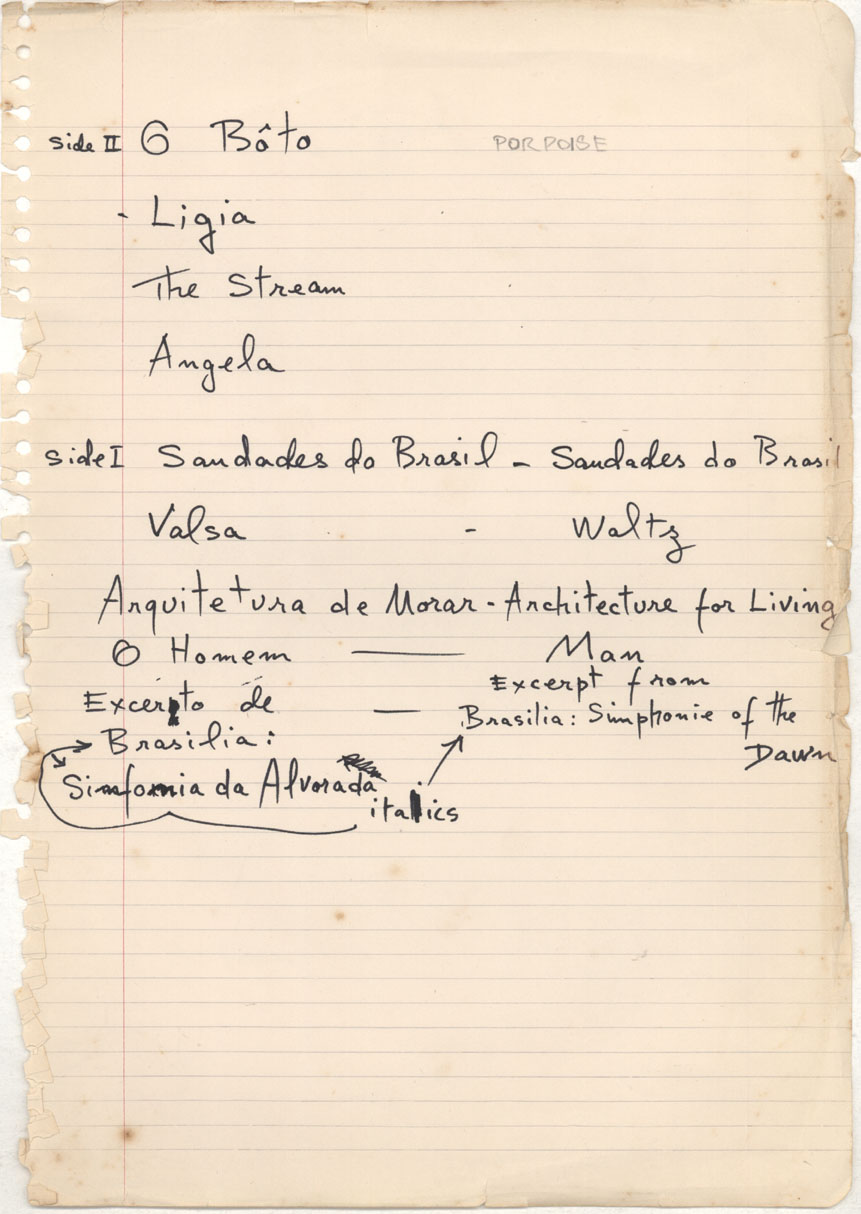 side II O Bôto PORPOISE
- Ligia
The Stream
Angela
side I Saudades do Brasil - Saudades do Brasil
Valsa - Waltz
Arquitetura de Morar - Architecture for Living
O Homem — Man
Excerpt from
Excerpto de — Brasilia: Simphonie of the
Brasilia: Dawn
Sinfonia da Alvorada
italics